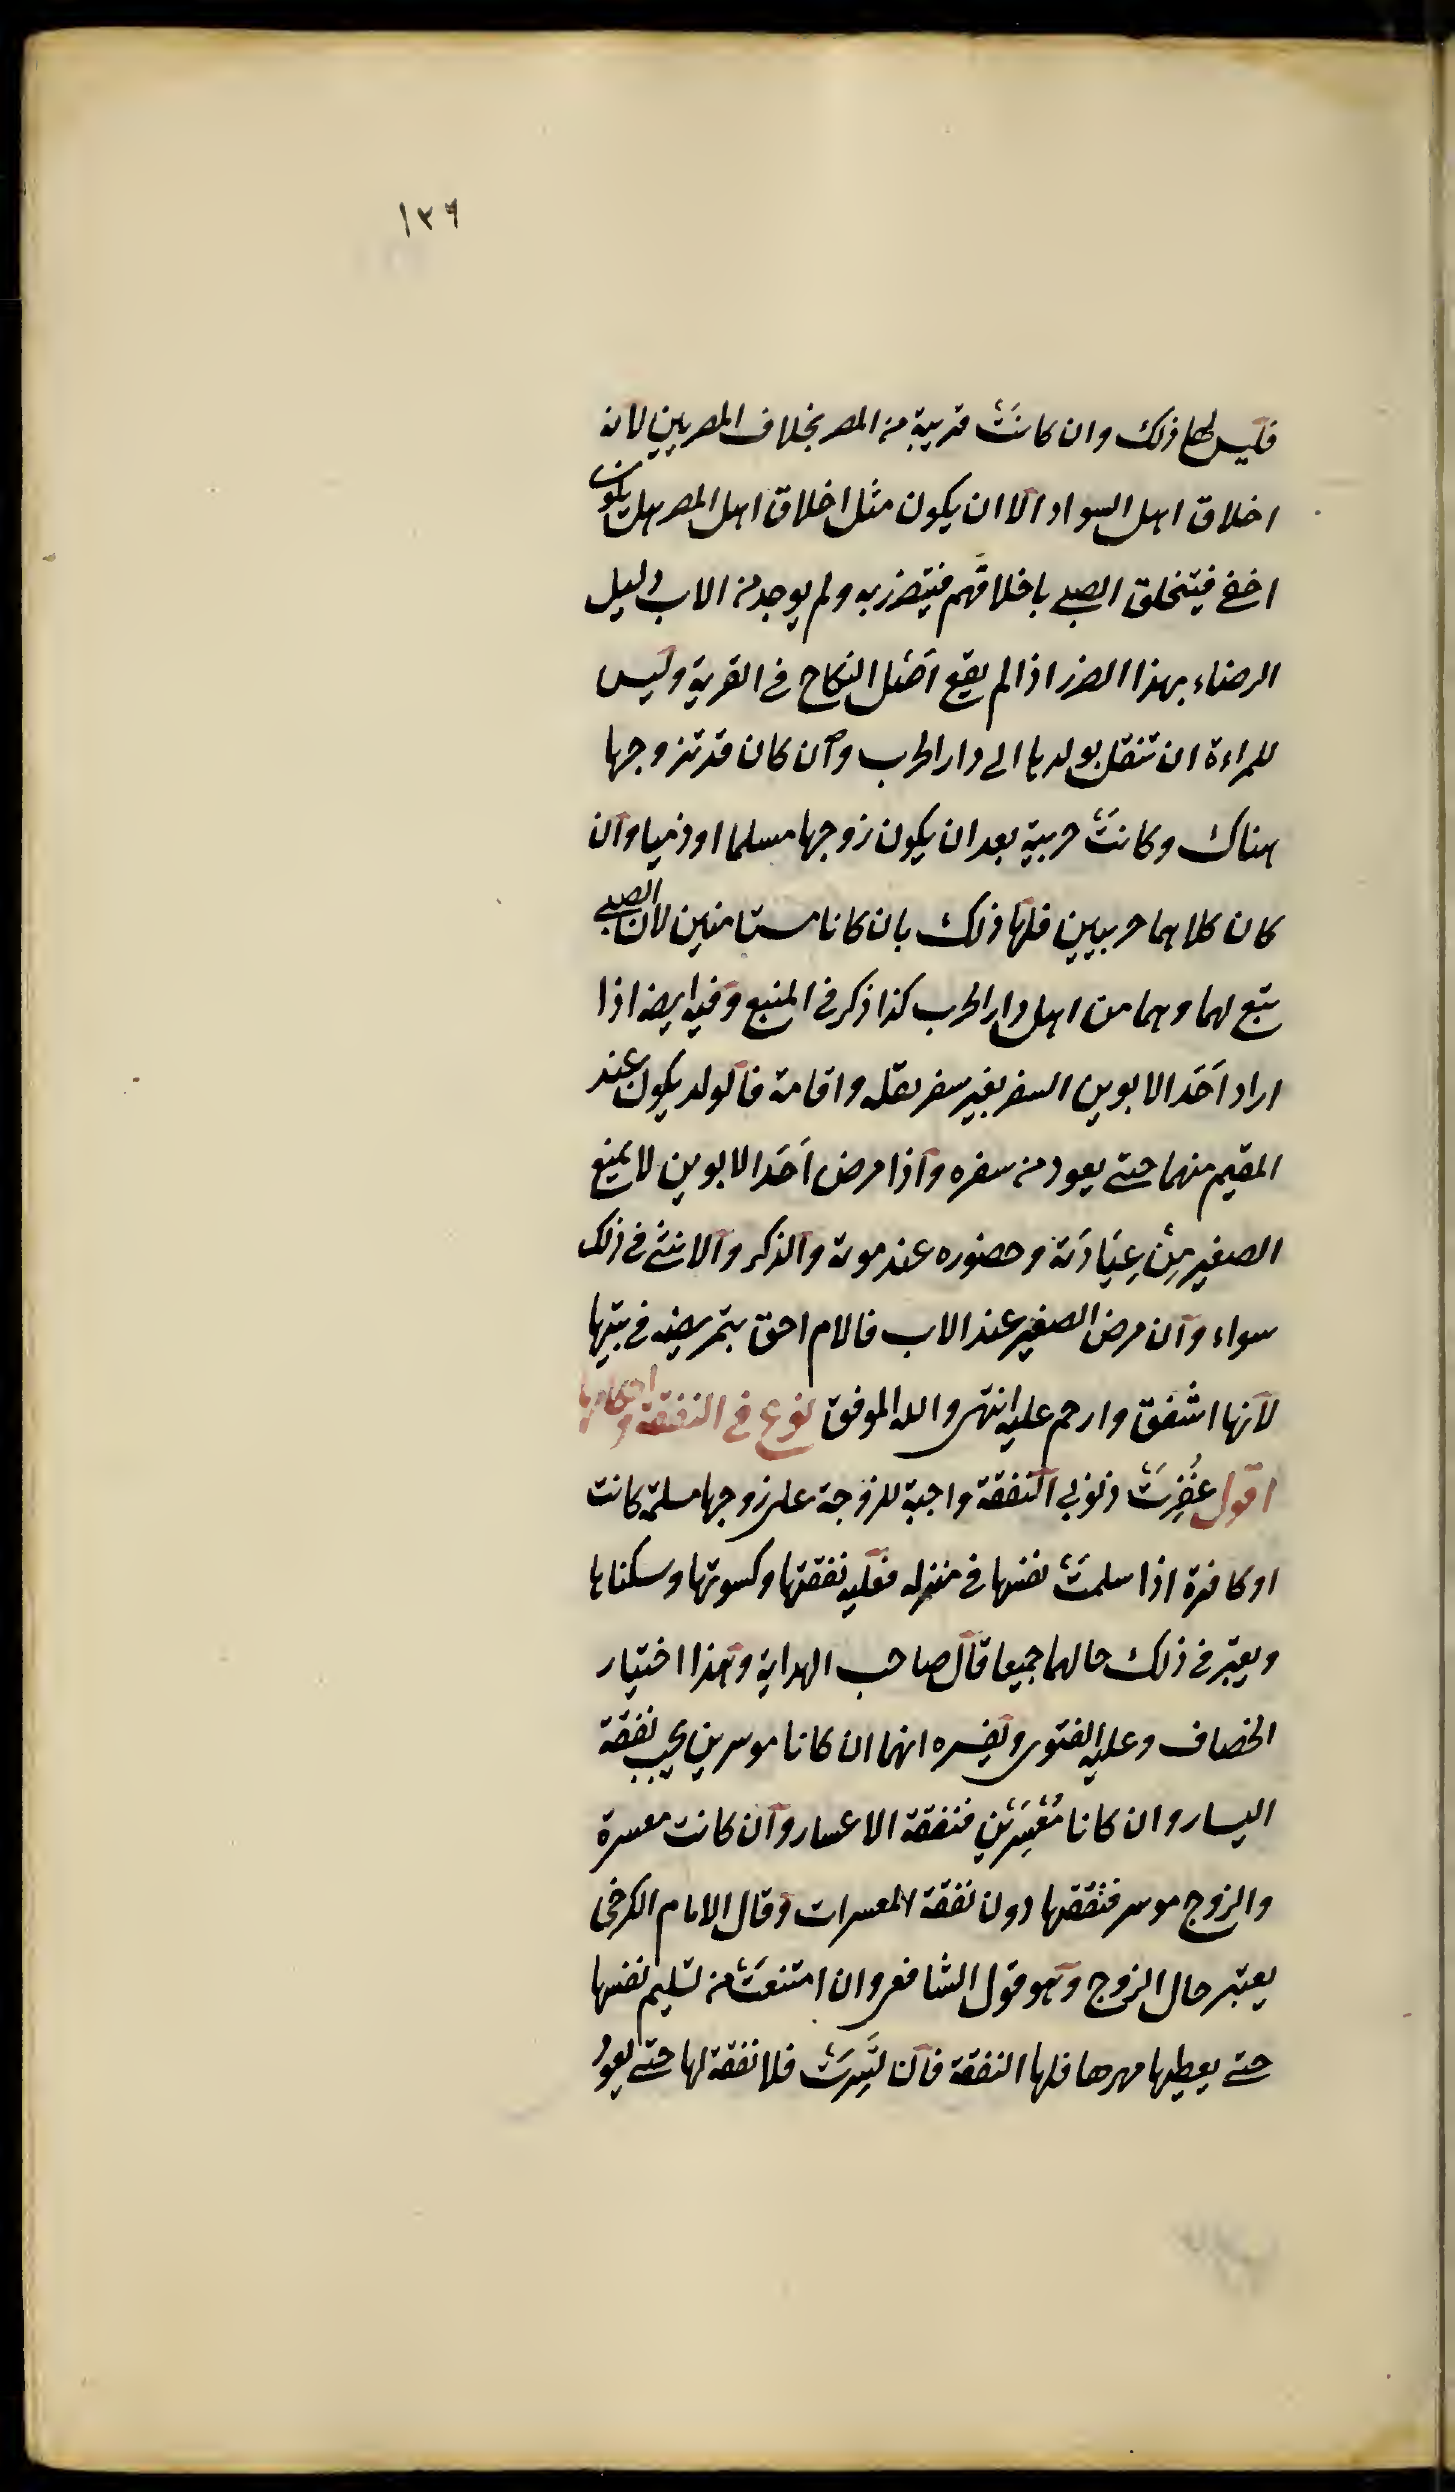 ١٣٦
فليس لها ذلك وان كانت قريبة من المصر بخلاف المصريين لان
اخلاق اهل السواد الا ان يكون مثل اخلاق اهل المصر بل يكون
اخف فيتخلق الصبي باخلاقهم فيتضرر به ولم يوجد من الاب دليل
الرضاء بهذا الضرر اذا لم يقع اصل النكاح في القرية وليس
للمراءة ان تنقل بولدها الى دار الحرب وان كان قد تزوجها
هناك وكانت حربية بعد ان يكون زوجها مسلما او ذميا وان
كان كلاهما حربيين فلها ذلك بان كانا مستامنين لان الصبي
تبع لهما وهما من اهل دار الحرب كذا ذكر في المنبع وفيه ايضا اذا
اراد احد الابوين السفر بغير سفر نقله واقامة فالولد يكون عند
المقيم منهما حتى يعود من سفره واذا مرض احد الابوين لا يمنع
الصغير مِنْ عِيَادَته وحضوره عند موته والذكر والانثى في ذلك
سواء وان مرض الصغير عند الاب فالام احق بتمريضه في بيتها
لانها اشفق وارحم عليه انتهى والله الموفق نوع في النفقة واحكامها
اقول غُفِرَتْ ذنوبي النفقة واجبة للزوجة على زوجها مسلمة كانت
او كافرة اذا سلمت نفسها في منزله فعليه نفقتها وكسوتها وسكناها
ويعتبر في ذلك حالهما جميعا قال صاحب الهداية وهذا اختيار
الخصاف وعليه الفتوى وتفسيره انهما ان كانا موسرين يجب نفقة
اليسار وان كانا مُعْسِرَيْنِ فنفقة الاعسار وان كانت معسرة
والزوج موسر فنفقتها دون نفقة المعسرات وقال الامام الكرخي
يعتبر حال الزوج وهو قول الشافعي وان امتنعت من تسليم نفسها
حتى يعطيها مهرها فلها النفقة فان فلا نفقة لها حتى يعود